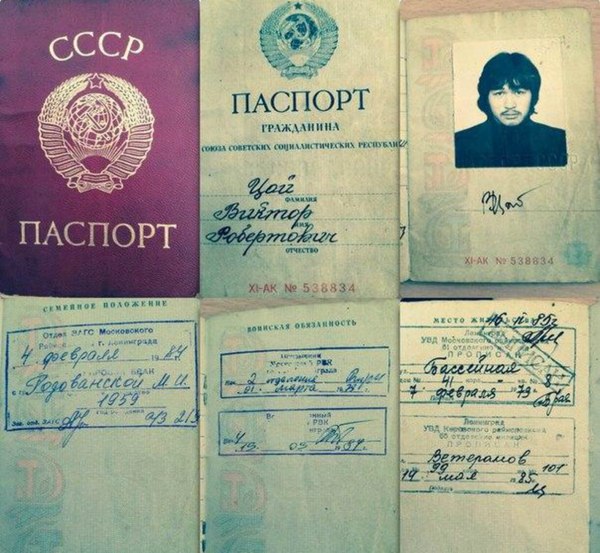 СССР
ПАСПОРТ
ПАСПОРТ
ГРАЖДАНИНА
СОЮЗА СОВЕТСКИХ СОЦИАЛИСТИЧЕСКИХ РЕСПУБЛИК
Цой
ФАМИЛИЯ
Виктор
ИМЯ
Робертович
ОТЧЕСТВО
XI-АК № 538834
XI-АК № 538834
СЕМЕЙНОЕ ПОЛОЖЕНИЕ
Отдел ЗАГС Московского
г. Ленинграда
4 февраля 1984
БРАК
Родованской М. И.
1959
Зав. отд. ЗАГС
ВОИНСКАЯ ОБЯЗАННОСТЬ
РВК
2 отделения
марта
РВК
13 03
МЕСТО
Ленинград
УВД Московского
ПРОПИСАН
Бассейная
41 8
7 февраля 79
Ленинград
УВД Кировского райисполкома
65 отделение милиции
ПРОПИСАН
Ветеранов
99 101
19 мая 85